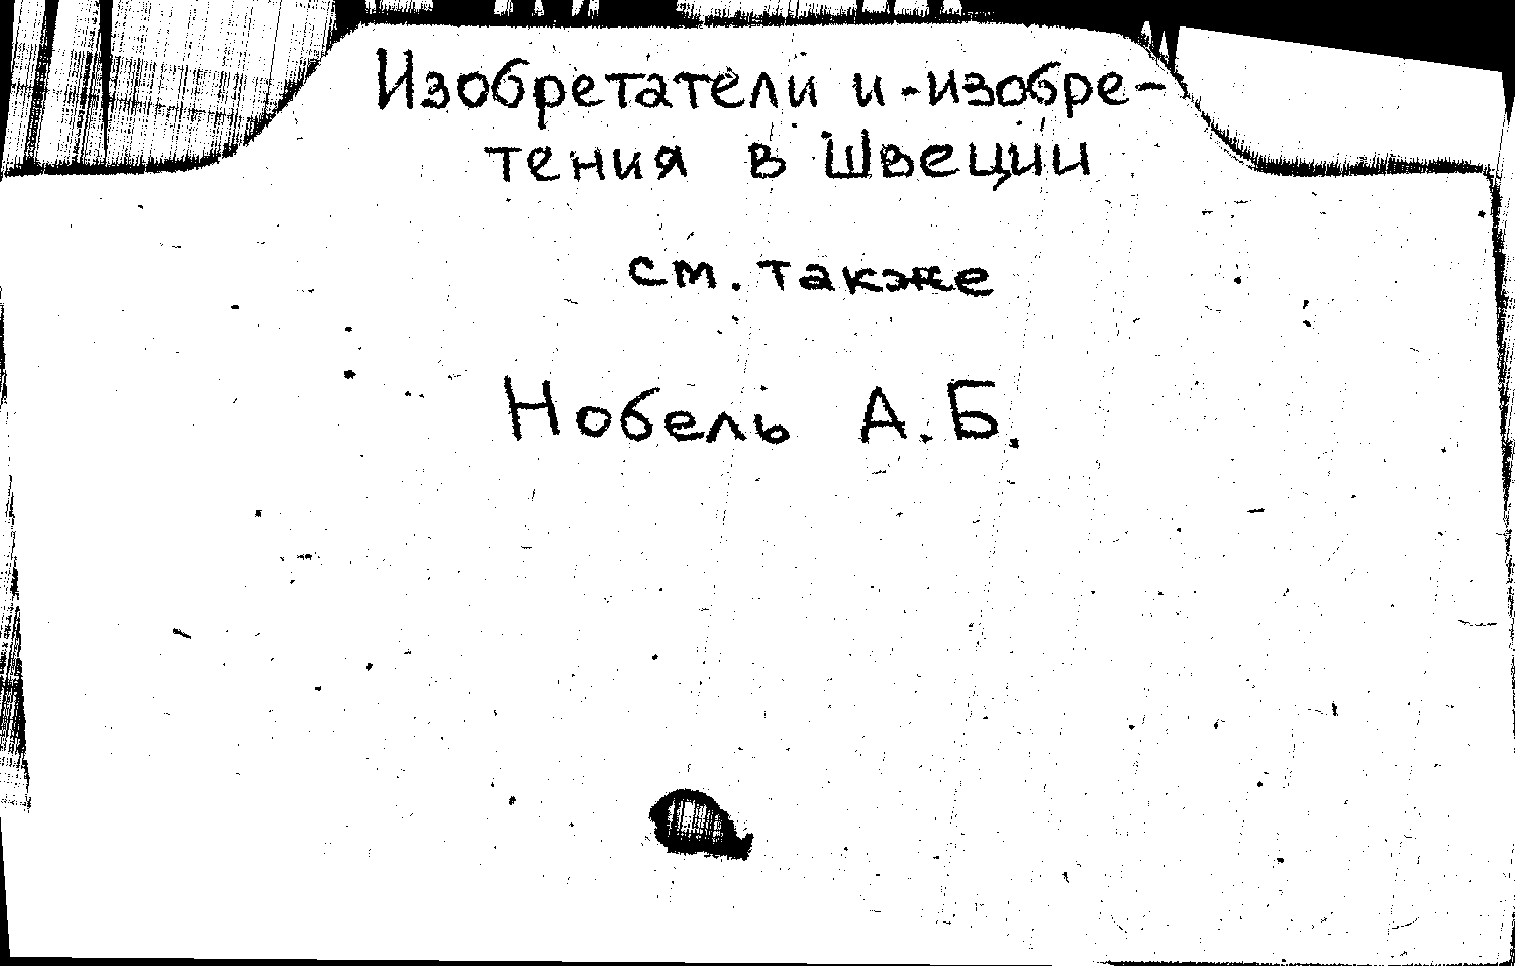 Изобретатели и -изобре-
тения в Швеции
см. также
Нобель А.Б.